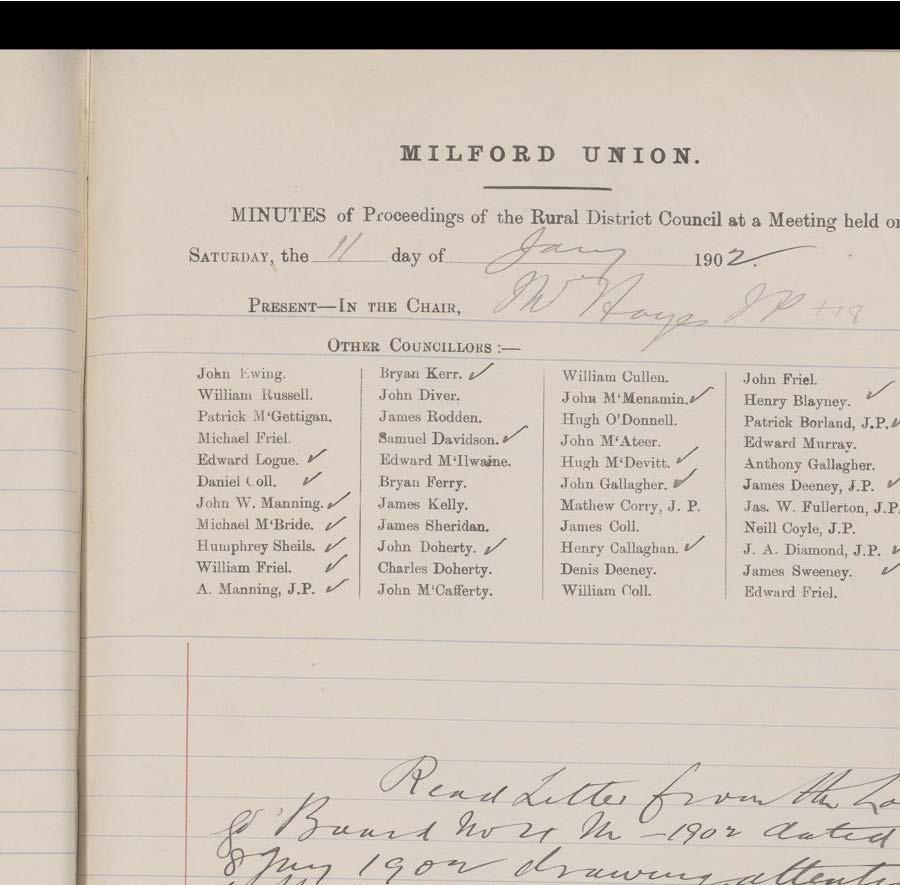 MILFORD UNION.
MINUTES of Proceedings of the Rural District Council at a Meeting held on
SATURDAY, the 11 day of Jany 1902.
PRESENT—IN THE CHAIR, Mr Hayes JP +18
OTHER COUNCILLORS :—
John Ewing.
William Russell.
Patrick M'Gettigan.
Michael Friel.
Edward Logue. ✓
Daniel Coll. ✓
John W. Manning. ✓
Michael M'Bride. ✓
Humphrey Sheils. ✓
William Friel. ✓
A. Manning, J.P. ✓
Bryan Kerr. ✓
John Diver.
James Rodden.
Samuel Davidson. ✓
Edward M'Ilwaine.
Bryan Ferry.
James Kelly.
James Sheridan.
John Doherty. ✓
Charles Doherty.
John M'Cafferty.
William Cullen.
John M'Menamin. ✓
Hugh O'Donnell.
John M'Ateer.
Hugh M'Devitt. ✓
John Gallagher. ✓
Mathew Corry, J. P.
James Coll.
Henry Callaghan. ✓
Denis Deeney.
William Coll.
John Friel.
Henry Blayney. ✓
Patrick Borland, J.P. ✓
Edward Murray.
Anthony Gallagher.
James Deeney, J.P. ✓
Jas. W. Fullerton, J.P.
Neill Coyle, J.P.
J. A. Diamond, J.P. ✓
James Sweeney. ✓
Edward Friel.
Read Letter from the Lo
Board No M - 1902 dated
8 Jany 1902 drawing attenti